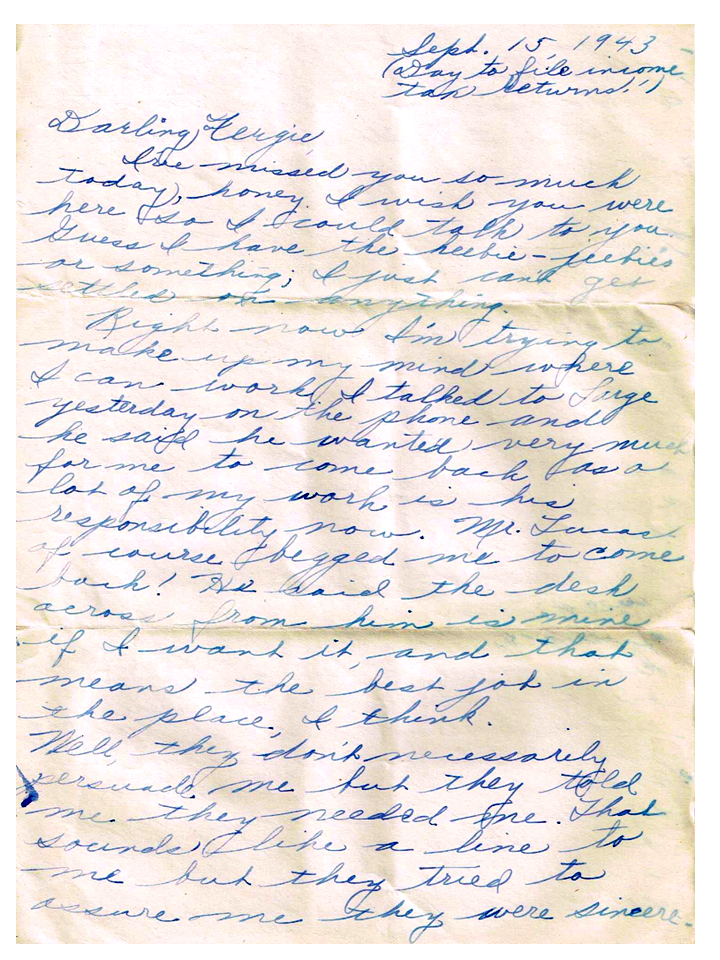 Sept. 15, 1943
(Day to file income
tax returns!)
Darling Fergie,
I've missed you so much
today, honey. I wish you were
here so I could talk to you.
Guess I have the heebie-jeebies
or something; I just can't get
settled on anything.
Right now I'm trying to
make up my mind where
I can work. I talked to Sarge
yesterday on the phone and
he said he wanted very much
for me to come back, as a
lot of my work is his
responsibility now. Mr. Lucas
of course begged me to come
back! He said the desk
across from him is mine
if I want it, and that
means the best job in
the place, I think.
Well, they don't necessarily
persuade me but they told
me they needed me. That
sounds like a line to
me but they tried to
assure me they were sincere.